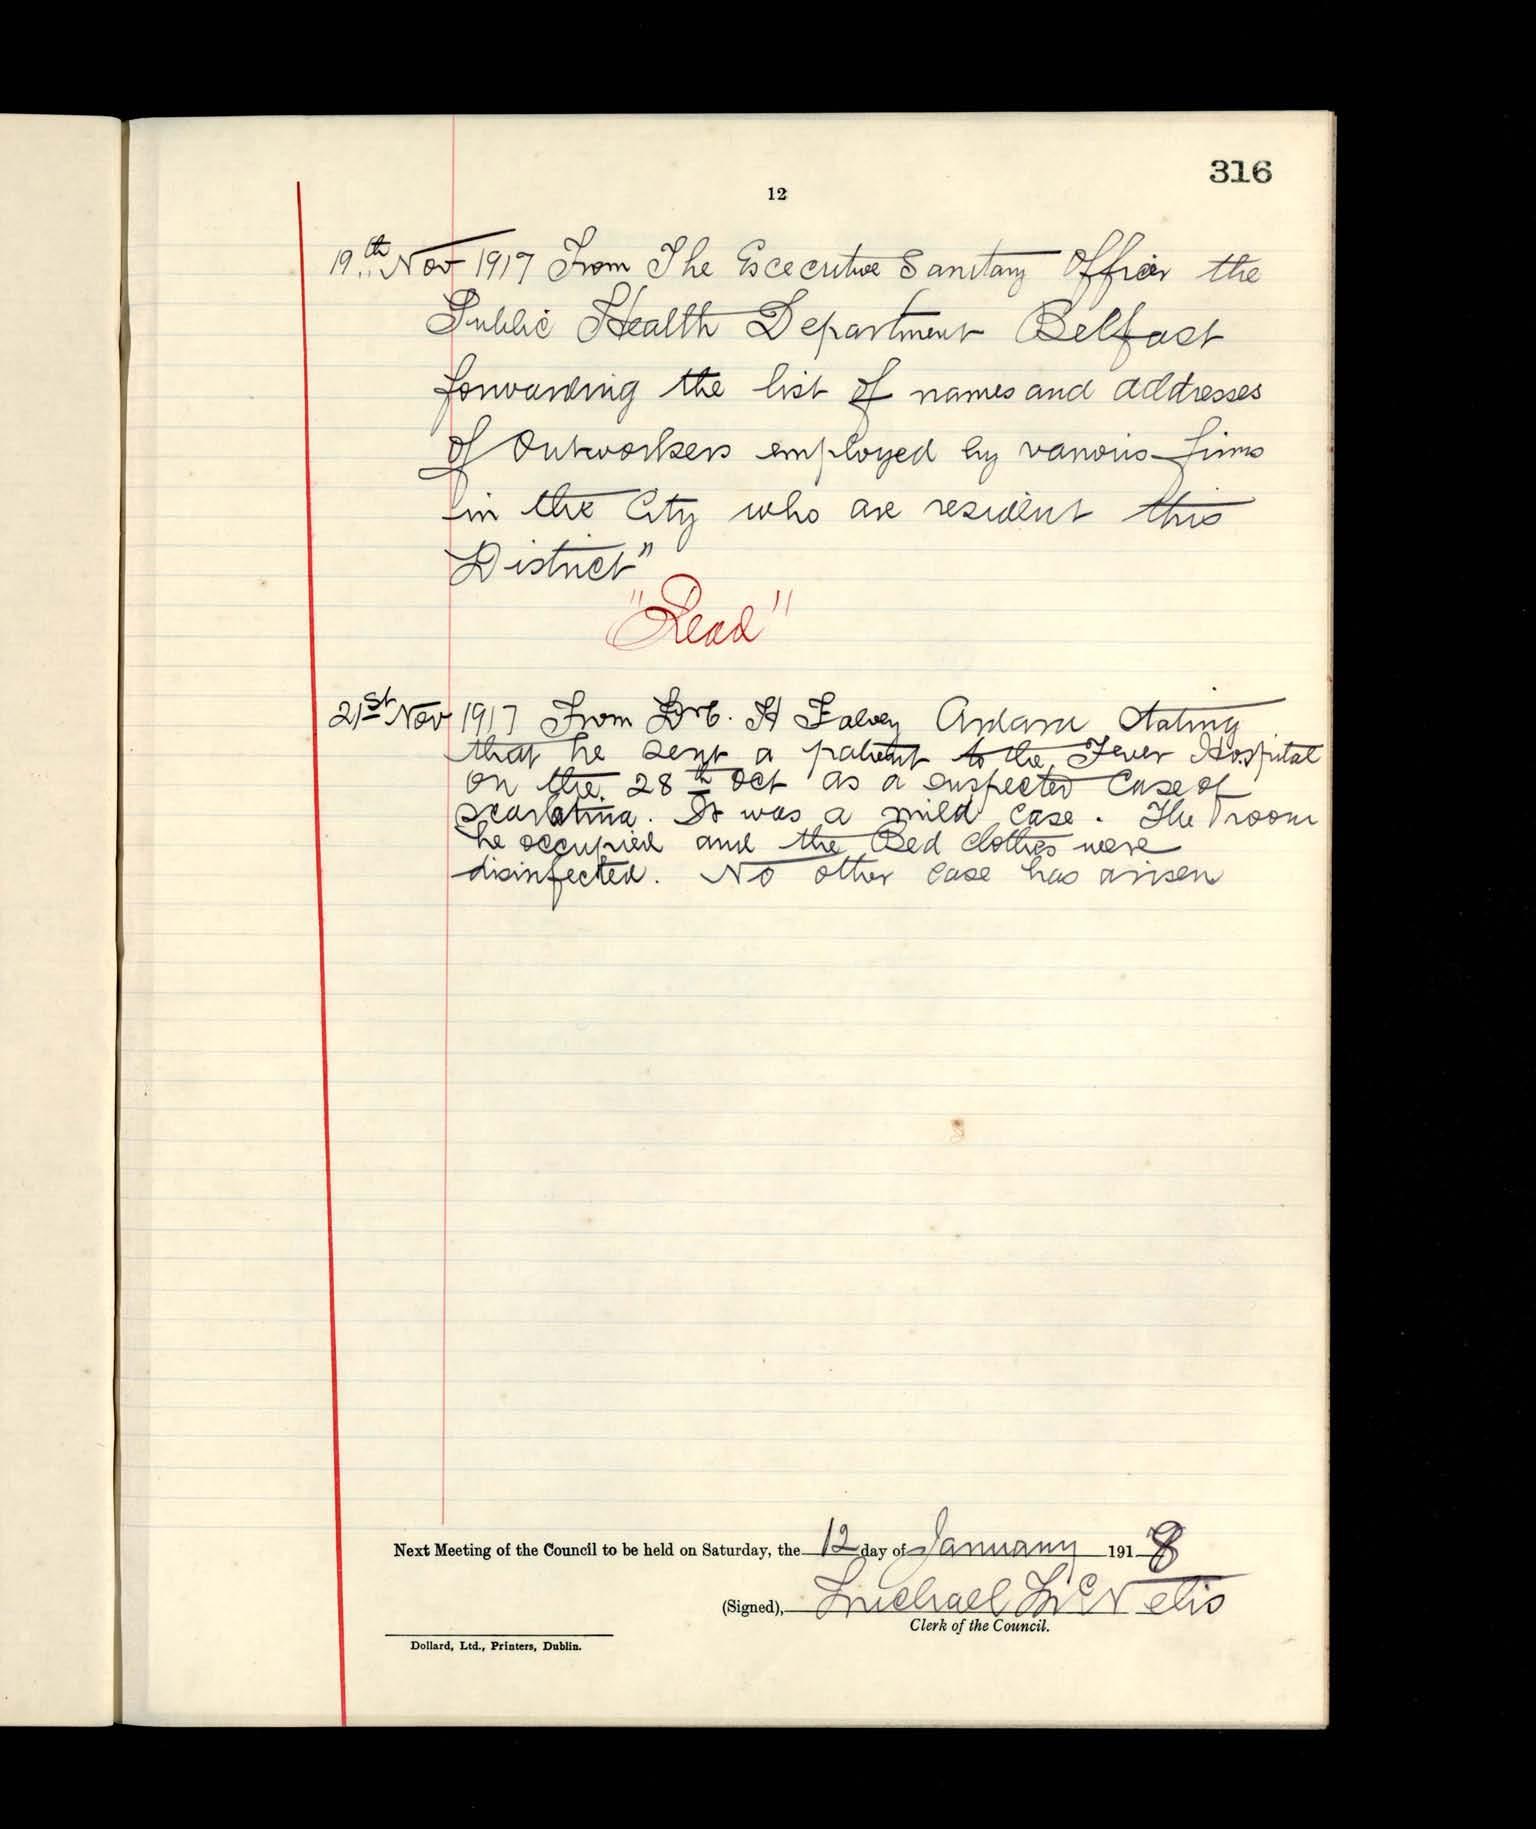 316
12
19th Nov 1917 From The Executive Sanitary Officer the
Public Health Department Belfast
forwarding the list of names and addresses
of Outworkers employed by various firms
in the City who are resident this
District"
"Read"
21st Nov 1917 From Dr C. H Falvey Ardara stating
that he sent a patient to the Fever Hospital
on the 28th Oct as a suspected Case of
scarlatina. It was a mild case. The room
he occupied and the Bed clothes were
disinfected. No other case has arisen
Next Meeting of the Council to be held on Saturday, the 12 day of January 1918
(Signed), Michael McNelis
Clerk of the Council.
Dollard, Ltd., Printers, Dublin.